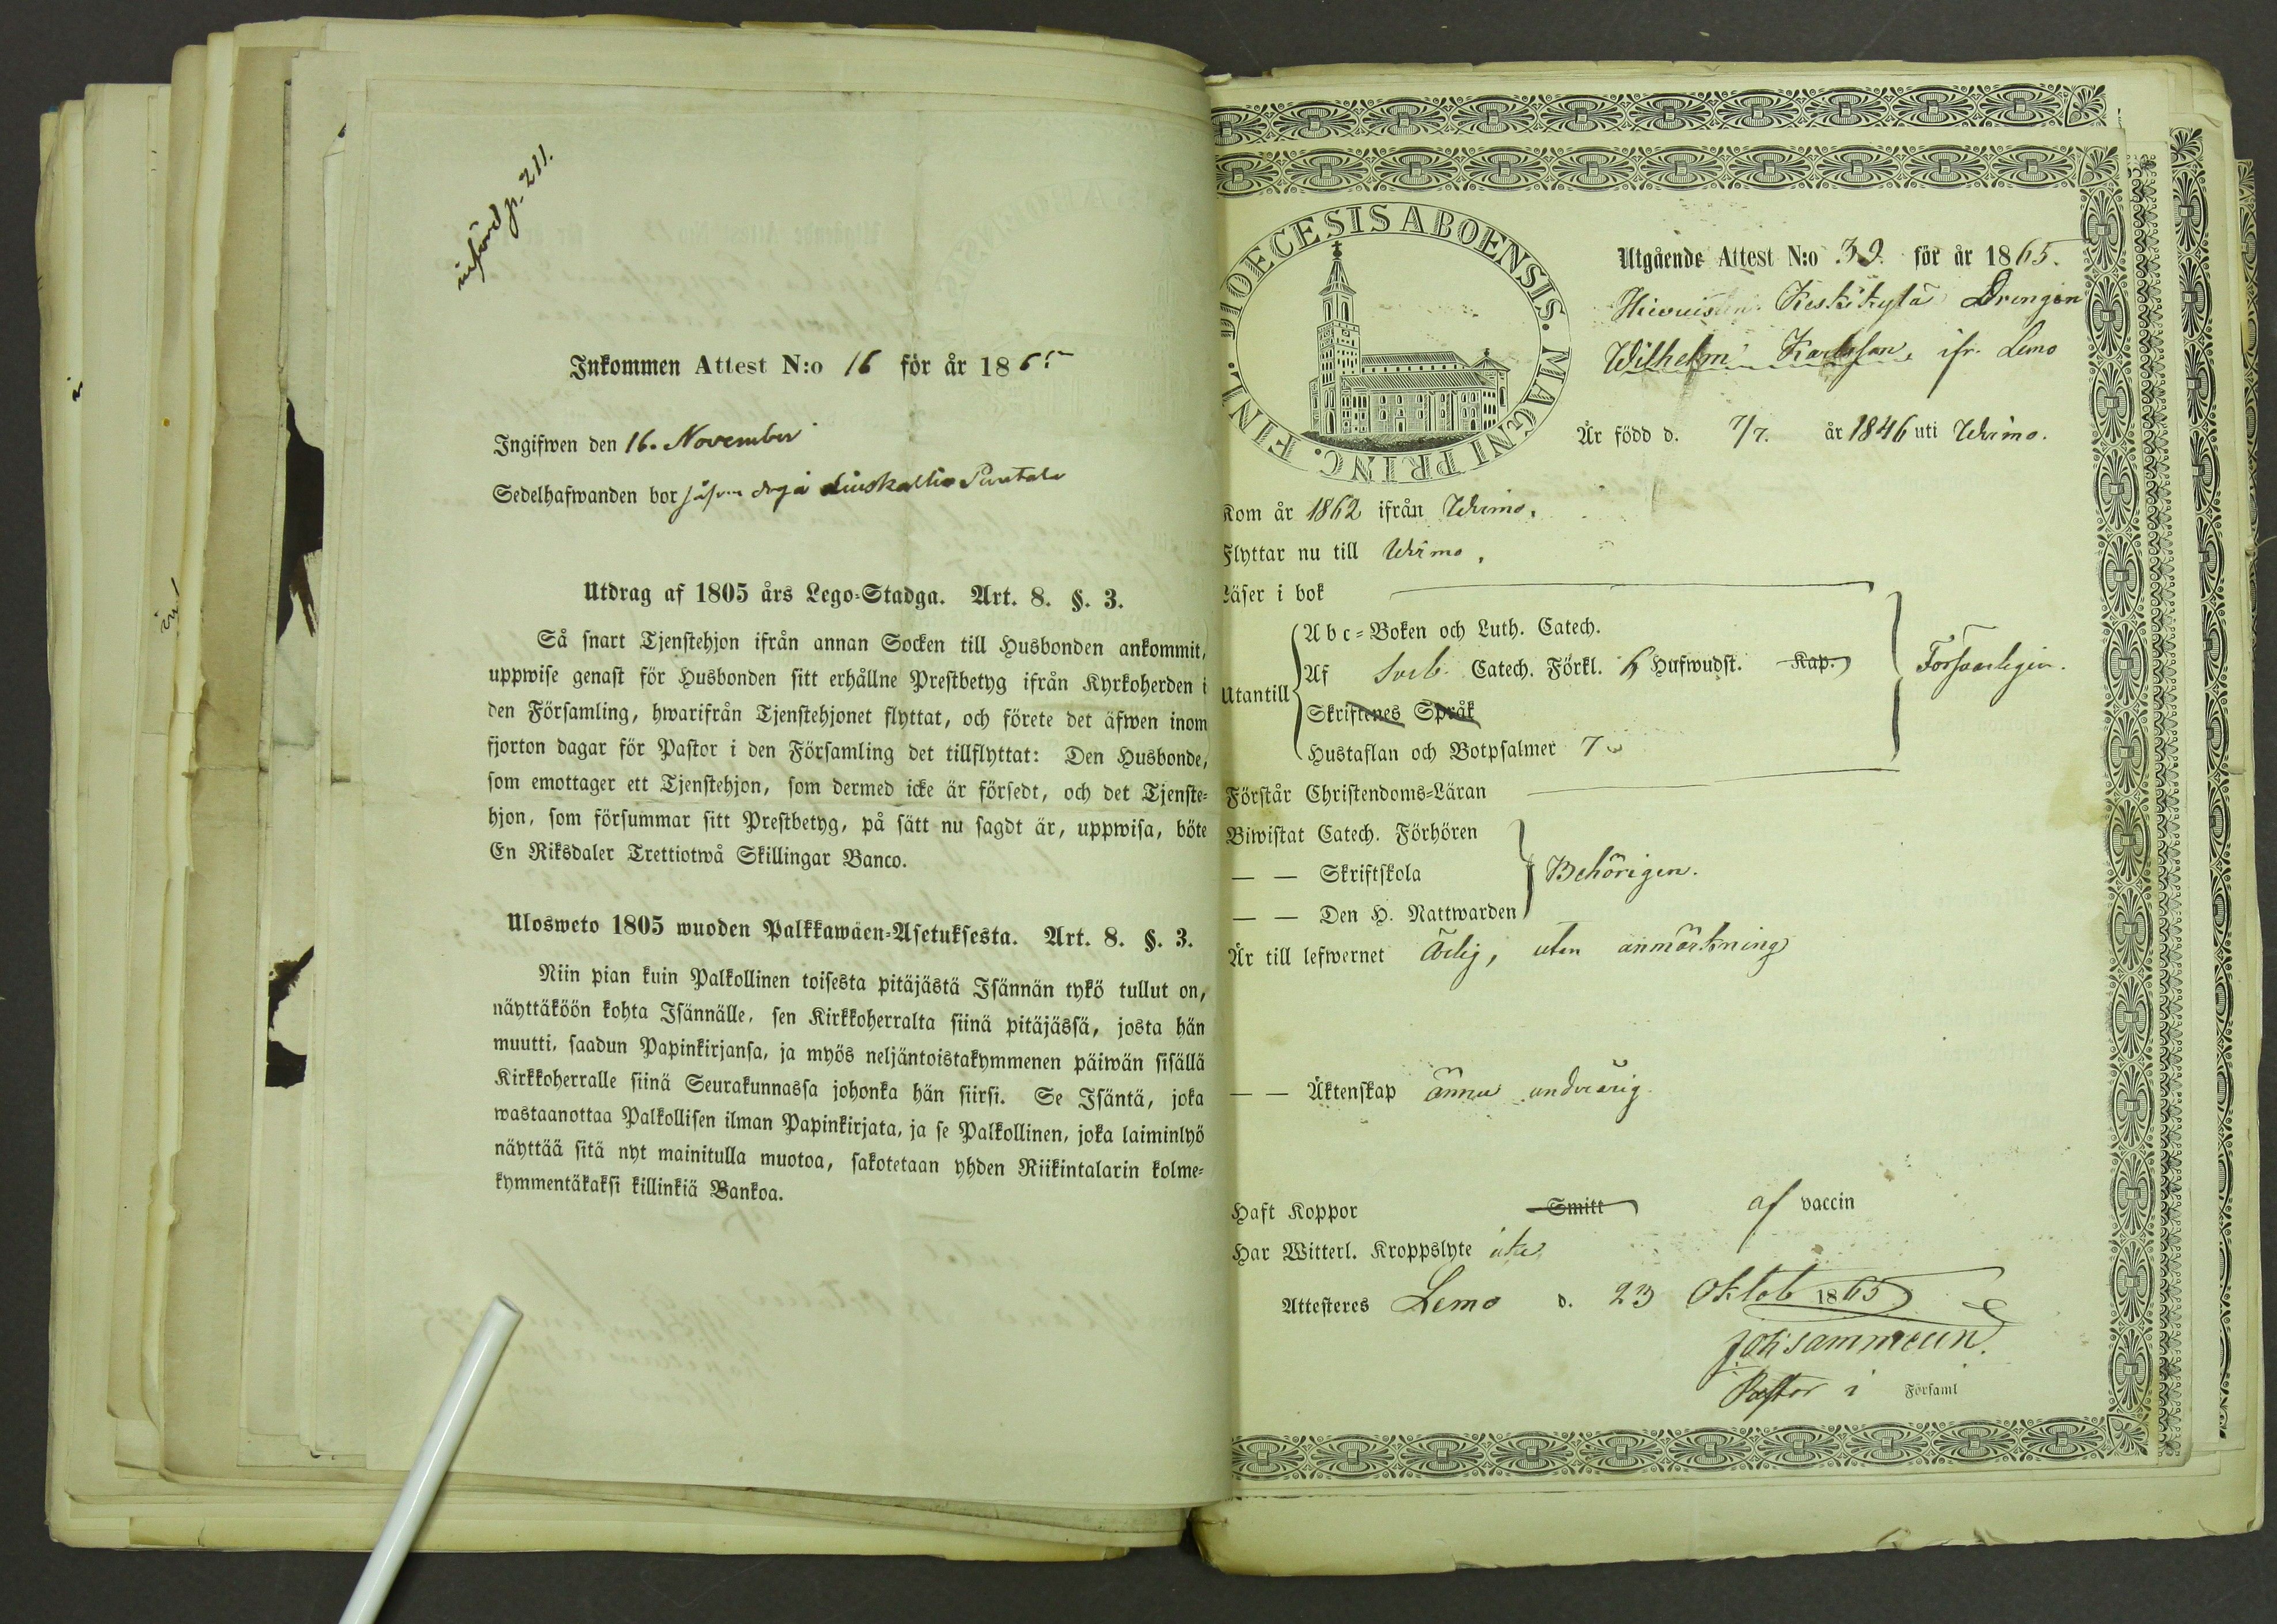 införd p. 211.
Inkommen Attest N:o 16 för år 1865
Ingifwen den 16. November
Sedelhafwanden bor
Utdrag af 1805 års Lego-Stadga. Art. 8. §. 3.
Så snart Tjenstehjon ifrån annan Socken till Husbonden ankommit,
uppwise genast för Husbonden sitt erhållne Prestbetyg ifrån Kyrkoherden i
den Församling, hwarifrån Tjenstehjonet flyttat, och förete det äfwen inom
fjorton dagar för Pastor i den Församling det tillflyttat: Den Husbonde,
som emottager ett Tjenstehjon, som dermed icke är försedt, och det Tjenste-
hjon, som försummar sitt Prestbetyg, på sätt nu sagdt är, uppwisa, böte
En Riksdaler Trettiotwå Skillingar Banco.
Ulosweto 1805 wuoden Palkkawäen-Asetuksesta. Art. 8. §. 3.
Niin pian kuin Palkollinen toisesta pitäjästä Isännän tykö tullut on,
näyttäköön kohta Isännälle, sen Kirkkoherralta siinä pitäjässä, josta hän
muutti, saadun Papinkirjansa, ja myös neljäntoistakymmenen päiwän sisällä
Kirkkoherralle siinä Seurakunnassa johonka hän siirsi. Se Isäntä, joka
wastaanottaa Palkollisen ilman Papinkirjata, ja se Palkollinen, joka laiminlyö
näyttää sitä nyt mainitulla muotoa, sakotetaan yhden Riikintalarin kolme-
kymmentäkaksi killinkiä Bankoa.
DIOECESIS ABOENSIS. MAGNI PRINC. FINL.
Utgående Attest N:o 39. för år 1865.
Keskikylä Drengen
Wilhelm Karlsson, ifr. Lemo
Är född d. 7/7. år 1846 uti Wirmo.
Kom år 1862 ifrån Wirmo.
Flyttar nu till Wirmo.
Läser i bok
Utantill
Abc-Boken och Luth. Catech.
Af Sveb. Catech. Förkl. 6 Hufwudst. Kap.
Skriftenes Språk
Hustaflan och Botpsalmer 7
Försvarligen.
Förstår Christendoms-Läran
Biwistat Catech. Förhören
— — Skriftskola
— — Den H. Nattwarden
Behörigen.
Är till lefwernet ärlig, utan anmärkning
— — Äktenskap ännu
Haft Koppor Smitt af vaccin
Har Witterl. Kroppslyte icke
Attesteres Lemo d. 23 Oktob 1865
Joh Sammelin.
Pastor i Församl